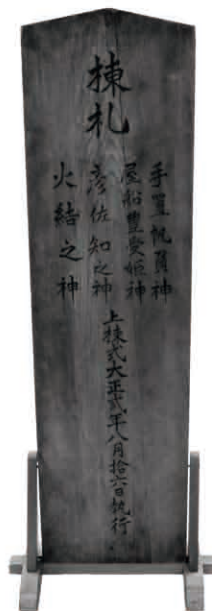 棟札
手置帆負神
屋船豊受姫神
彦佐知之神
火結之神
上棟式大正弐年八月拾六日執行